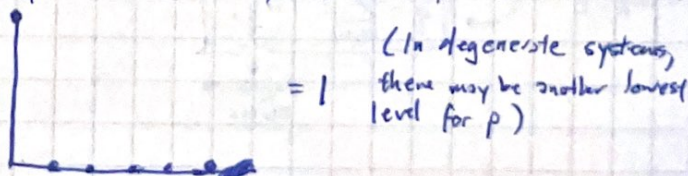 (In degenerate systems,
= 1 there may be another lowest
level for p)